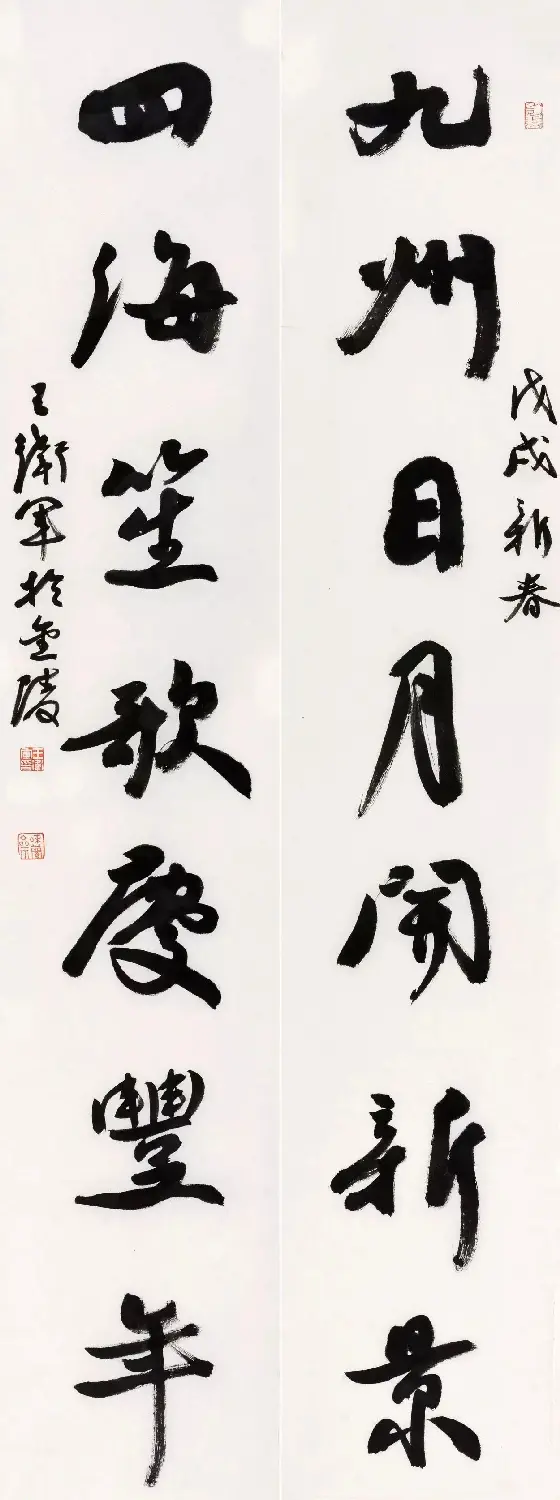 戊戌新春
九州日月開新景
四海笙歌慶豐年
王衛軍於金陵